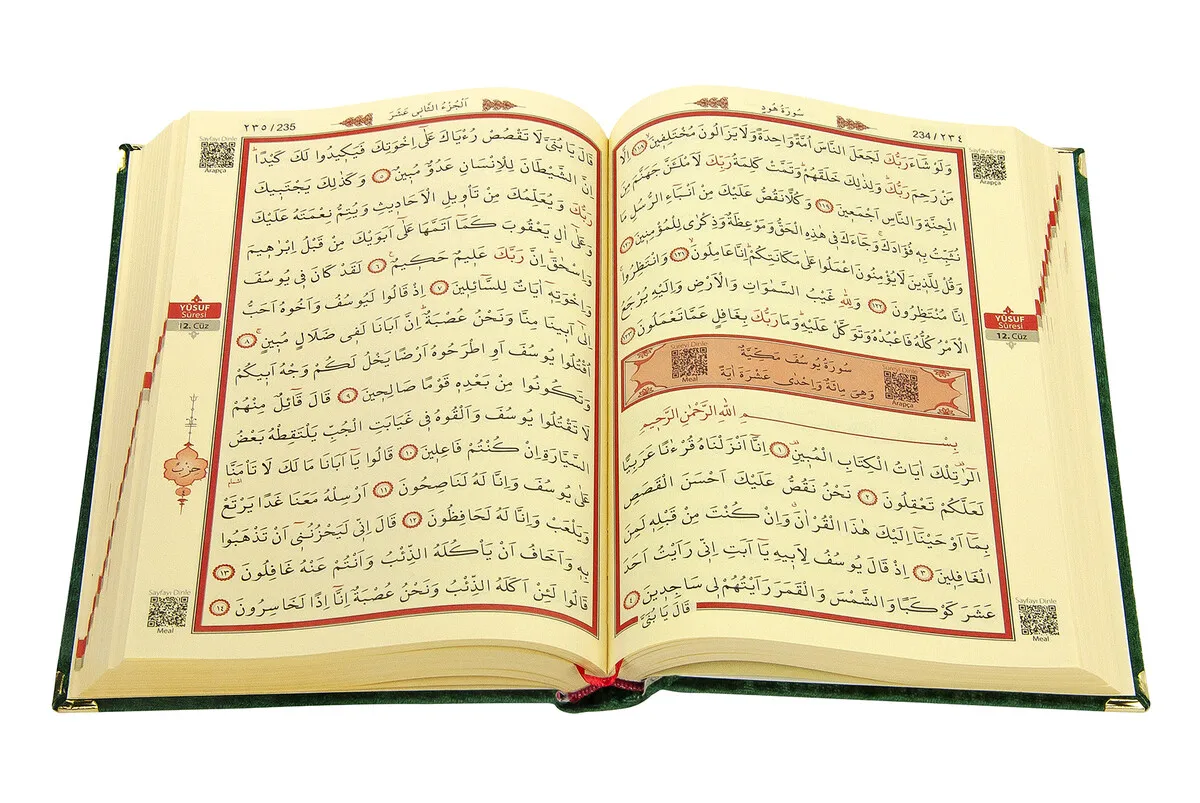 سُورَةُ هُودٍ
234/٢٣٤
Sayfayı Dinle
Arapça
وَلَوْ شَٓاءَ رَبُّكَ لَجَعَلَ النَّاسَ اُمَّةً وَاحِدَةً وَلَا يَزَالُونَ مُخْتَلِفٖينَۙ ﴿١١٨﴾ اِلَّا
مَنْ رَحِمَ رَبُّكَۜ وَلِذٰلِكَ خَلَقَهُمْۜ وَتَمَّتْ كَلِمَةُ رَبِّكَ لَاَمْلَـَٔنَّ جَهَنَّمَ مِنَ
الْجِنَّةِ وَالنَّاسِ اَجْمَعٖينَ ﴿١١٩﴾ وَكُلًّا نَقُصُّ عَلَيْكَ مِنْ اَنْبَٓاءِ الرُّسُلِ مَا
نُثَبِّتُ بِهٖ فُؤٰادَكَۚ وَجَٓاءَكَ فٖي هٰذِهِ الْحَقُّ وَمَوْعِظَةٌ وَذِكْرٰى لِلْمُؤْمِنٖينَ ﴿١٢٠﴾
وَقُلْ لِلَّذٖينَ لَا يُؤْمِنُونَ اعْمَلُوا عَلٰى مَكَانَتِكُمْۜ اِنَّا عَامِلُونَۙ ﴿١٢١﴾ وَانْتَظِرُواۚ
اِنَّا مُنْتَظِرُونَ ﴿١٢٢﴾ وَلِلّٰهِ غَيْبُ السَّمٰوَاتِ وَالْاَرْضِ وَاِلَيْهِ يُرْجَعُ
الْاَمْرُ كُلُّهُ فَاعْبُدْهُ وَتَوَكَّلْ عَلَيْهِۜ وَمَا رَبُّكَ بِغَافِلٍ عَمَّا تَعْمَلُونَ ﴿١٢٣﴾
YÛSUF
Sûresi
12. Cüz
Sureyi Dinle
Meal
سُورَةُ يُوسُفَ مَكِّيَّةٌ
وَهِيَ مِائَةٌ وَاِحْدٰى عَشْرَةَ اٰيَةً
Sureyi Dinle
Arapça
بِسْمِ اللّٰهِ الرَّحْمٰنِ الرَّحٖيمِ
الٓرٰ تِلْكَ اٰيَاتُ الْكِتَابِ الْمُبٖينِ ﴿١﴾ اِنَّٓا اَنْزَلْنَاهُ قُرْءٰنًا عَرَبِيًّا
لَعَلَّكُمْ تَعْقِلُونَ ﴿٢﴾ نَحْنُ نَقُصُّ عَلَيْكَ اَحْسَنَ الْقَصَصِ
بِمَٓا اَوْحَيْنَٓا اِلَيْكَ هٰذَا الْقُرْاٰنَۗ وَاِنْ كُنْتَ مِنْ قَبْلِهٖ لَمِنَ
الْغَافِلٖينَ ﴿٣﴾ اِذْ قَالَ يُوسُفُ لِاَبٖيهِ يَٓا اَبَتِ اِنّٖي رَاَيْتُ اَحَدَ
عَشَرَ كَوْكَبًا وَالشَّمْسَ وَالْقَمَرَ رَاَيْتُهُمْ لٖي سَاجِدٖينَ ﴿٤﴾
قَالَ يَا بُنَيَّ
Sayfayı Dinle
Meal
اَلْجُزْءُ الثَّانٖي عَشَرَ
٢٣٥/235
Sayfayı Dinle
Arapça
قَالَ يَا بُنَيَّ لَا تَقْصُصْ رُءْيَاكَ عَلٰٓى اِخْوَتِكَ فَيَكٖيدُوا لَكَ كَيْدًاۜ
اِنَّ الشَّيْطَانَ لِلْاِنْسَانِ عَدُوٌّ مُبٖينٌ ﴿٥﴾ وَكَذٰلِكَ يَجْتَبٖيكَ
رَبُّكَ وَيُعَلِّمُكَ مِنْ تَأْوٖيلِ الْاَحَادٖيثِ وَيُتِمُّ نِعْمَتَهُ عَلَيْكَ
وَعَلٰٓى اٰلِ يَعْقُوبَ كَمَٓا اَتَمَّهَا عَلٰٓى اَبَوَيْكَ مِنْ قَبْلُ اِبْرٰهٖيمَ
وَاِسْحٰقَۜ اِنَّ رَبَّكَ عَلٖيمٌ حَكٖيمٌ۟ ﴿٦﴾ لَقَدْ كَانَ فٖي يُوسُفَ
وَاِخْوَتِهٖٓ اٰيَاتٌ لِلسَّٓائِلٖينَ ﴿٧﴾ اِذْ قَالُوا لَيُوسُفُ وَاَخُوهُ اَحَبُّ
اِلٰٓى اَبٖينَا مِنَّا وَنَحْنُ عُصْبَةٌۜ اِنَّ اَبَانَا لَفٖي ضَلَالٍ مُبٖينٍۚ ﴿٨﴾
اُقْتُلُوا يُوسُفَ اَوِ اطْرَحُوهُ اَرْضًا يَخْلُ لَكُمْ وَجْهُ اَبٖيكُمْ
وَتَكُونُوا مِنْ بَعْدِهٖ قَوْمًا صَالِحٖينَ ﴿٩﴾ قَالَ قَٓائِلٌ مِنْهُمْ
لَا تَقْتُلُوا يُوسُفَ وَاَلْقُوهُ فٖي غَيَابَتِ الْجُبِّ يَلْتَقِطْهُ بَعْضُ
السَّيَّارَةِ اِنْ كُنْتُمْ فَاعِلٖينَ ﴿١٠﴾ قَالُوا يَٓا اَبَانَا مَا لَكَ لَا تَأْمَنَّا
عَلٰى يُوسُفَ وَاِنَّا لَهُ لَنَاصِحُونَ ﴿١١﴾ اَرْسِلْهُ مَعَنَا غَدًا يَرْتَعْ
وَيَلْعَبْ وَاِنَّا لَهُ لَحَافِظُونَ ﴿١٢﴾ قَالَ اِنّٖي لَيَحْزُنُنٖٓي اَنْ تَذْهَبُوا
بِهٖ وَاَخَافُ اَنْ يَأْكُلَهُ الذِّئْبُ وَاَنْتُمْ عَنْهُ غَافِلُونَ ﴿١٣﴾
قَالُوا لَئِنْ اَكَلَهُ الذِّئْبُ وَنَحْنُ عُصْبَةٌ اِنَّٓا اِذًا لَخَاسِرُونَ ﴿١٤﴾
YÛSUF
Sûresi
12. Cüz
حزب
Sayfayı Dinle
Meal